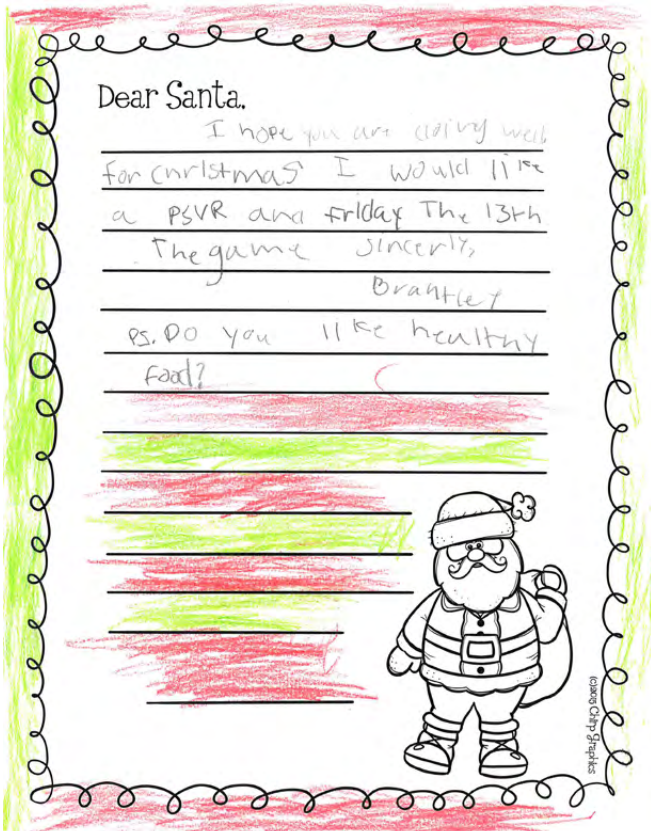 Dear Santa,
I hope you are doing well
for christmas I would like
a PSVR and Friday The 13th
The game Sincerly,
Brantley
Ps. Do you like healthy
food?
(c)2015 Chirp Graphics